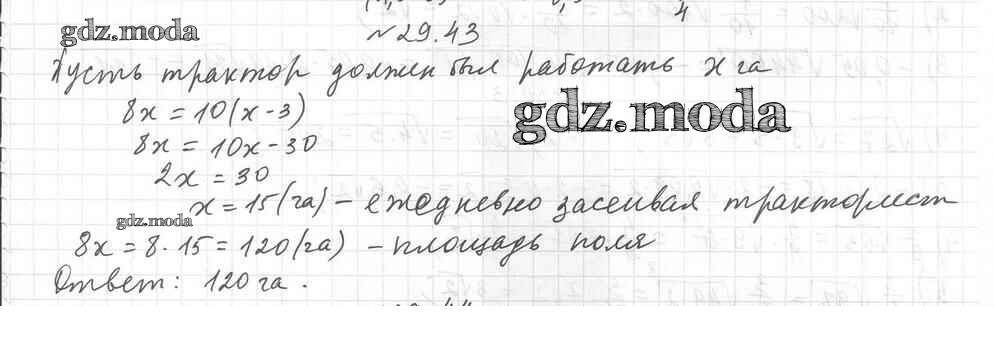 gdz.moda
№29.43
Пусть трактор должен был работать x га
8x = 10(x-3)
gdz.moda
8x = 10x-30
2x = 30
x = 15(га) – ежедневно засеивая тракторист
gdz.moda
8x = 8·15 = 120(га) – площадь поля
Ответ: 120 га.